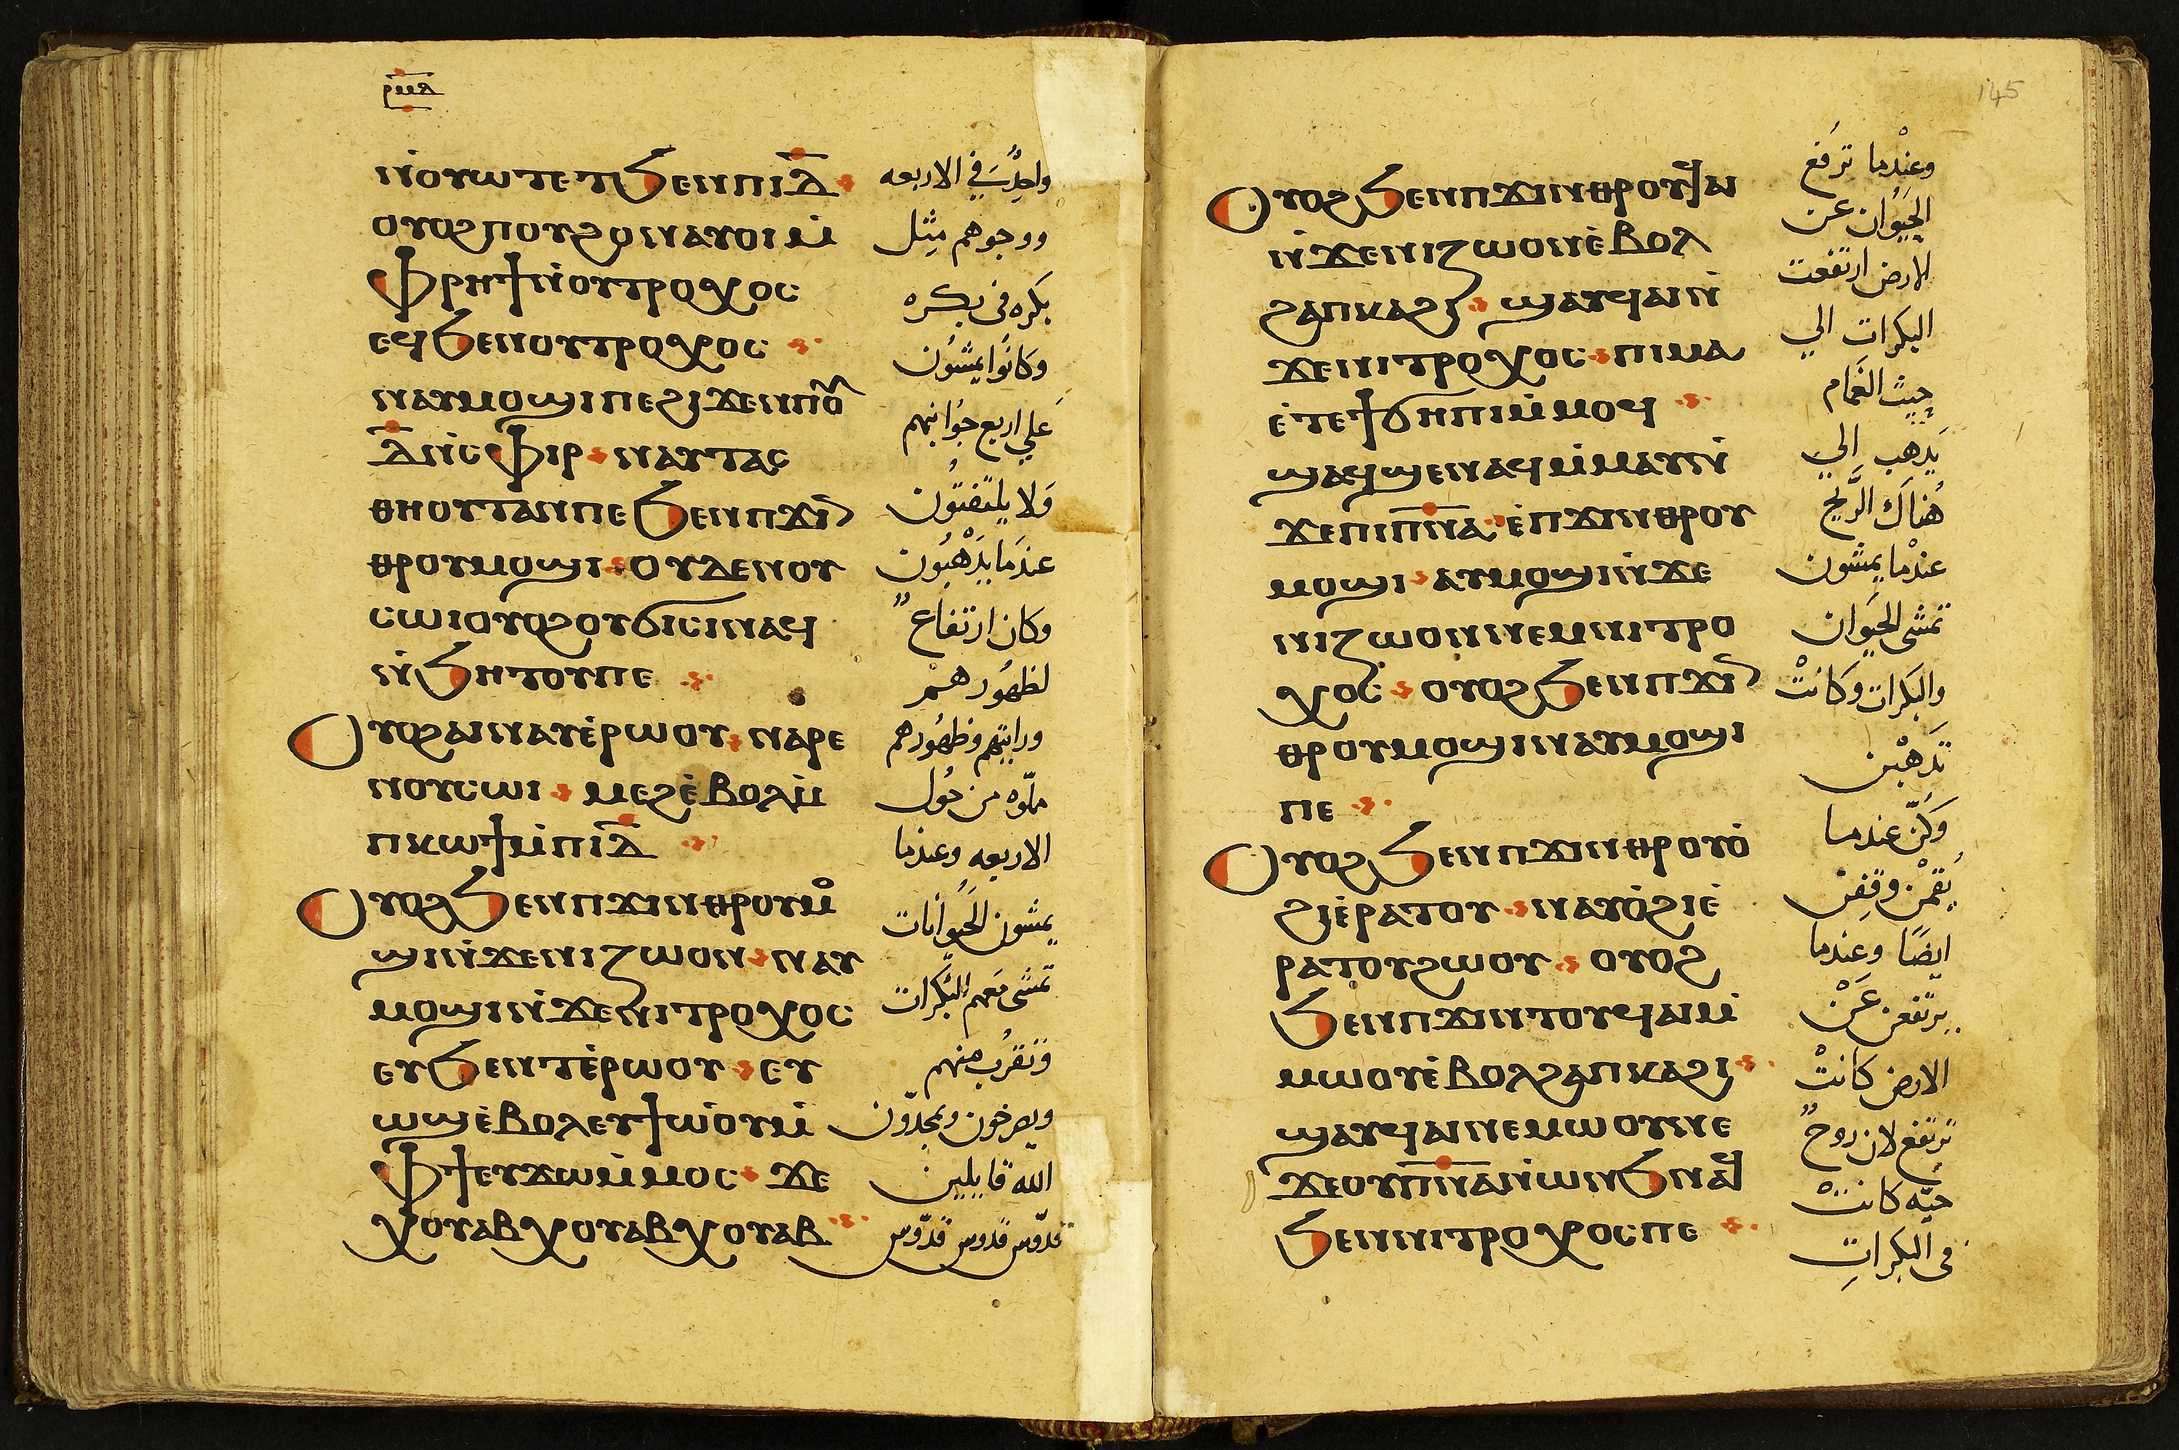 ⲣⲙⲇ
ⲛ̀ⲟⲩⲱⲧ ⲉⲧϧⲉⲛ ⲡⲓⲇ̅
ⲟⲩⲟϩ ⲡⲟⲩϩⲟ ⲛⲁⲩⲟⲓ ⲙ̀
ⲫⲣⲏϯ ⲛ̀ⲟⲩⲧⲣⲟⲭⲟⲥ
ⲉϥϧⲉⲛ ⲟⲩⲧⲣⲟⲭⲟⲥ
ⲛⲁⲩⲙⲟϣⲓ ⲡⲉ ϩⲓϫⲉⲛ ⲡⲟⲩ
ⲇ̅ ⲛ̀ⲥⲫⲓⲣ ⲛⲁⲩⲧⲁⲥ
ⲑⲏⲟⲩⲧ ⲁⲛ ⲡⲉ ϧⲉⲛ ⲡϫⲓⲛ
ⲑⲣⲟⲩⲙⲟϣⲓ ⲟⲩⲇⲉ ⲛⲟⲩ
ⲥⲱⲓ ⲟⲩⲟϩ ⲟⲩϭⲓⲥⲓ ⲛⲁϥ
ⲛ̀ϧⲏⲧⲟⲩ ⲡⲉ
Ⲟⲩⲟϩ ⲁⲓⲛⲁⲩ ⲉ̀ⲣⲱⲟⲩ ⲛⲁⲣⲉ
ⲛⲟⲩⲥⲱⲓ ⲙⲉϩ ⲉ̀ⲃⲟⲗ ⲙ̀
ⲡⲕⲱϯ ⲙ̀ⲡⲓⲇ̅
Ⲟⲩⲟϩ ϧⲉⲛ ⲡϫⲓⲛⲑⲣⲟⲩⲙⲟ
ϣⲓ ⲛ̀ϫⲉ ⲛⲓⲍⲱⲟⲛ ⲛⲁⲩ
ⲙⲟϣⲓ ⲛ̀ϫⲉ ⲛⲓⲧⲣⲟⲭⲟⲥ
ⲉⲩϧⲉⲛⲧ ⲉ̀ⲣⲱⲟⲩ ⲉⲩ
ⲱϣ ⲉ̀ⲃⲟⲗ ⲉⲩϯⲱ̀ⲟⲩ ⲙ̀
ⲫϯ ⲉⲩϫⲱ ⲙ̀ⲙⲟⲥ ϫⲉ
ⲭⲟⲩⲁⲃ ⲭⲟⲩⲁⲃ ⲭⲟⲩⲁⲃ
في الاربعه
ووجوهم مثل
بكره في بكره
وكانوا يمشون
علي اربع جوانبهم
ولا يلتفتون
عندما يذهبون
وكان ارتفاع
لظهورهم
ورايتهم وظهورهم
ملوه من حول
الاربعه وعندما
يمشون الحيوانات
تمشي معهم البكرات
وتقرب منهم
ويصرخون ويمجدون
الله قايلين
قدوس قدوس قدوس
145
Ⲟⲩⲟϩ ϧⲉⲛ ⲡϫⲓⲛⲑⲣⲟⲩϥⲁⲓ
ⲛ̀ϫⲉ ⲛⲓⲍⲱⲟⲛ ⲉ̀ⲃⲟⲗ
ϩⲁ ⲡⲕⲁϩⲓ ϣⲁⲩϥⲁⲓ ⲛ̀
ϫⲉ ⲛⲓⲧⲣⲟⲭⲟⲥ ⲡⲓⲙⲁ
ⲉ̀ⲧⲉ ϯϭⲏⲡⲓ ⲙ̀ⲙⲟϥ
ϣⲁϥϣⲉⲛⲁϥ ⲙ̀ⲙⲁⲩ ⲛ̀
ϫⲉ ⲡⲓⲡ̅ⲛ̅ⲁ̅ ⲉ̀ⲡϫⲓⲛⲑⲣⲟⲩ
ⲙⲟϣⲓ ⲁⲩⲙⲟϣⲓ ⲛ̀ϫⲉ
ⲛⲓⲍⲱⲟⲛ ⲛⲉⲙ ⲛⲓⲧⲣⲟ
ⲭⲟⲥ ⲟⲩⲟϩ ϧⲉⲛ ⲡϫⲓⲛ
ⲑⲣⲟⲩⲙⲟϣⲓ ⲛⲁⲩⲙⲟϣⲓ
ⲡⲉ
Ⲟⲩⲟϩ ϧⲉⲛ ⲡϫⲓⲛⲑⲣⲟⲩⲟ̀
ϩⲓ ⲉ̀ⲣⲁⲧⲟⲩ ⲛⲁⲩⲟ̀ϩⲓ ⲉ̀
ⲣⲁⲧⲟⲩ ϩⲱⲟⲩ ⲟⲩⲟϩ
ϧⲉⲛ ⲡϫⲓⲛⲧⲟⲩϥⲁⲓ ⲙ̀
ⲙⲱⲟⲩ ⲉ̀ⲃⲟⲗ ϩⲁ ⲡⲕⲁϩⲓ
ϣⲁⲩϥⲁⲓ ⲛⲉⲙⲱⲟⲩ ⲛⲉ
ϫⲉ ⲟⲩⲡ̅ⲛ̅ⲁ̅ ⲛ̀ⲱⲛϧ ⲛⲁϥ
ϧⲉⲛ ⲛⲓⲧⲣⲟⲭⲟⲥ ⲡⲉ
وعندما ترفع
الحيوان عن
الارض ارتفعت
البكرات الي
حيث الغمام
يذهب الي
هناك الريح
عندما يمشون
تمشي الحيوان
والبكرات وكانت
تذهبن
وكن عندما
يقمن وقفن
ايضا وعندما
يرتفعن عن
الارض كانت
ترتفع لان روح
حيه كانت
في البكرات